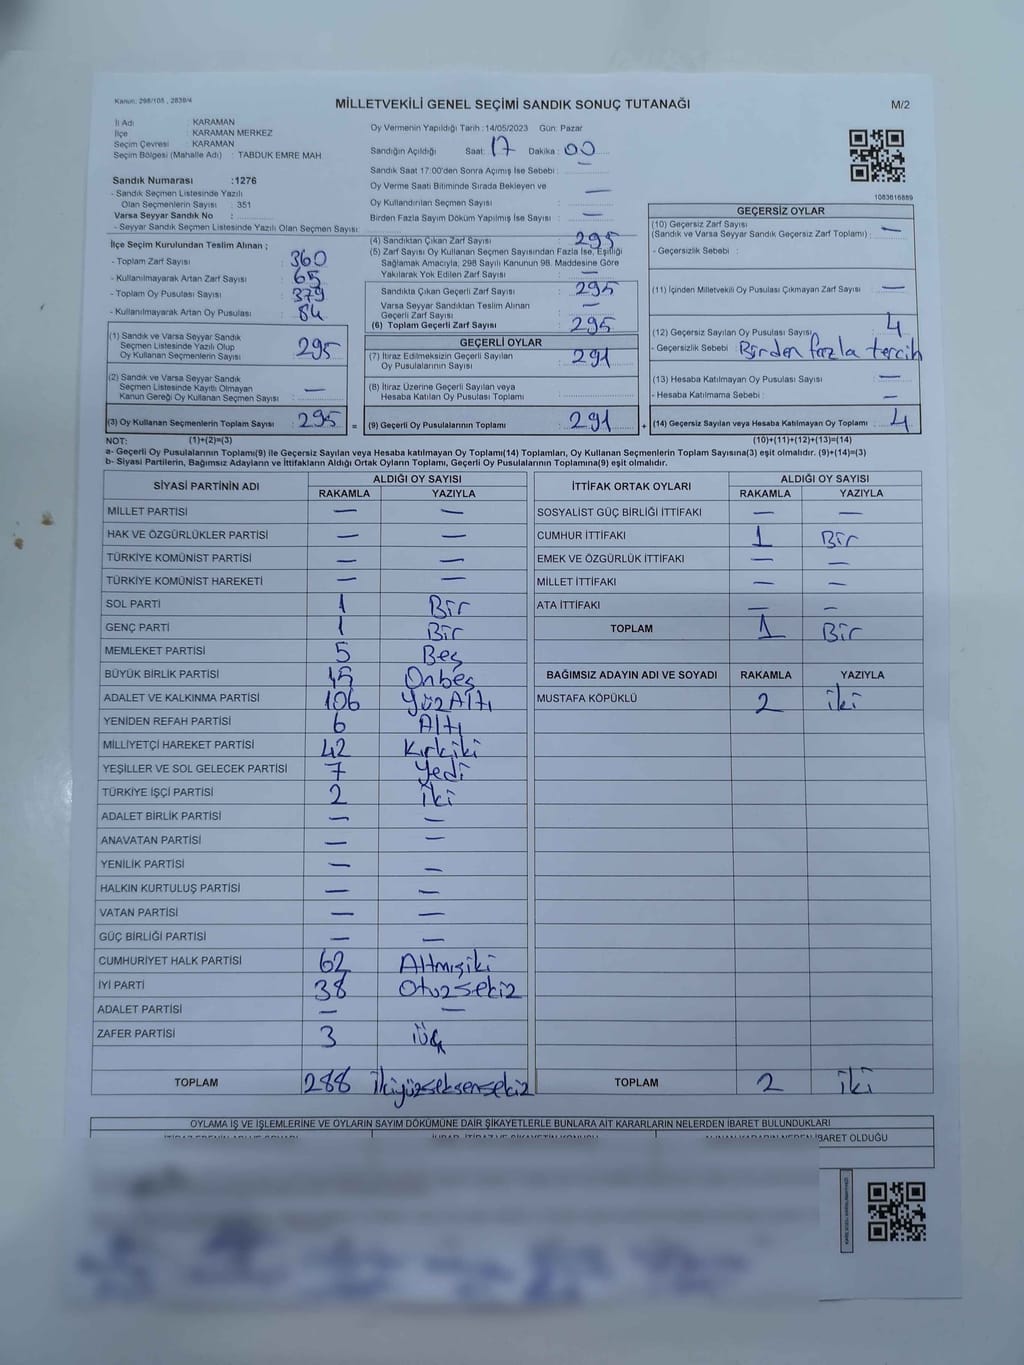 Kanun: 298/105 , 2839/4
MİLLETVEKİLİ GENEL SEÇİMİ SANDIK SONUÇ TUTANAĞI
M/2
İl Adı : KARAMAN
İlçe : KARAMAN MERKEZ
Seçim Çevresi : KARAMAN
Seçim Bölgesi (Mahalle Adı) : TABDUK EMRE MAH
Sandık Numarası :1276
- Sandık Seçmen Listesinde Yazılı
Olan Seçmenlerin Sayısı : 351
Varsa Seyyar Sandık No :
- Seyyar Sandık Seçmen Listesinde Yazılı Olan Seçmen Sayısı:
Oy Vermenin Yapıldığı Tarih :14/05/2023 Gün: Pazar
Sandığın Açıldığı Saat: 17 Dakika : 00
Sandık Saat 17:00'den Sonra Açımış İse Sebebi : —
Oy Verme Saati Bitiminde Sırada Bekleyen ve
Oy Kullandırılan Seçmen Sayısı : —
Birden Fazla Sayım Döküm Yapılmış İse Sayısı : —
1083616889
İlçe Seçim Kurulundan Teslim Alınan ;
- Toplam Zarf Sayısı : 360
- Kullanılmayarak Artan Zarf Sayısı : 65
- Toplam Oy Pusulası Sayısı : 379
- Kullanılmayarak Artan Oy Pusulası : 84
(1) Sandık ve Varsa Seyyar Sandık
Seçmen Listesinde Yazılı Olup
Oy Kullanan Seçmenlerin Sayısı : 295
(2) Sandık ve Varsa Seyyar Sandık
Seçmen Listesinde Kayıtlı Olmayan
Kanun Gereği Oy Kullanan Seçmen Sayısı : —
(3) Oy Kullanan Seçmenlerin Toplam Sayısı : 295 =
(4) Sandıktan Çıkan Zarf Sayısı : 295
(5) Zarf Sayısı Oy Kullanan Seçmen Sayısından Fazla İse, Eşitliği
Sağlamak Amacıyla; 298 Sayılı Kanunun 98. Maddesine Göre
Yakılarak Yok Edilen Zarf Sayısı : —
Sandıkta Çıkan Geçerli Zarf Sayısı : 295
Varsa Seyyar Sandıktan Teslim Alınan
Geçerli Zarf Sayısı : —
(6) Toplam Geçerli Zarf Sayısı : 295
GEÇERLİ OYLAR
(7) İtiraz Edilmeksizin Geçerli Sayılan
Oy Pusulalarının Sayısı : 291
(8) İtiraz Üzerine Geçerli Sayılan veya
Hesaba Katılan Oy Pusulası Toplamı :
(9) Geçerli Oy Pusulalarının Toplamı : 291 +
GEÇERSİZ OYLAR
(10) Geçersiz Zarf Sayısı
(Sandık ve Varsa Seyyar Sandık Geçersiz Zarf Toplamı) : —
- Geçersizlik Sebebi :
(11) İçinden Milletvekili Oy Pusulası Çıkmayan Zarf Sayısı : —
(12) Geçersiz Sayılan Oy Pusulası Sayısı : 4
- Geçersizlik Sebebi : Birden fazla tercih
(13) Hesaba Katılmayan Oy Pusulası Sayısı : —
- Hesaba Katılmama Sebebi : —
(14) Geçersiz Sayılan veya Hesaba Katılmayan Oy Toplamı : 4
NOT: (1)+(2)=(3) (10)+(11)+(12)+(13)=(14)
a- Geçerli Oy Pusulalarının Toplamı(9) ile Geçersiz Sayılan veya Hesaba katılmayan Oy Toplamı(14) Toplamları, Oy Kullanan Seçmenlerin Toplam Sayısına(3) eşit olmalıdır. (9)+(14)=(3)
b- Siyasi Partilerin, Bağımsız Adayların ve İttifakların Aldığı Ortak Oyların Toplamı, Geçerli Oy Pusulalarının Toplamına(9) eşit olmalıdır.
SİYASİ PARTİNİN ADI ALDIĞI OY SAYISI
RAKAMLA YAZIYLA
MİLLET PARTİSİ — —
HAK VE ÖZGÜRLÜKLER PARTİSİ — —
TÜRKİYE KOMÜNİST PARTİSİ — —
TÜRKİYE KOMÜNİST HAREKETİ — —
SOL PARTİ 1 Bir
GENÇ PARTİ 1 Bir
MEMLEKET PARTİSİ 5 Beş
BÜYÜK BİRLİK PARTİSİ 15 Onbeş
ADALET VE KALKINMA PARTİSİ 106 YüzAltı
YENİDEN REFAH PARTİSİ 6 Altı
MİLLİYETÇİ HAREKET PARTİSİ 42 Kırkiki
YEŞİLLER VE SOL GELECEK PARTİSİ 7 Yedi
TÜRKİYE İŞÇİ PARTİSİ 2 İki
ADALET BİRLİK PARTİSİ — —
ANAVATAN PARTİSİ — —
YENİLİK PARTİSİ — —
HALKIN KURTULUŞ PARTİSİ — —
VATAN PARTİSİ — —
GÜÇ BİRLİĞİ PARTİSİ — —
CUMHURİYET HALK PARTİSİ 62 Altmışiki
İYİ PARTİ 38 Otuzsekiz
ADALET PARTİSİ — —
ZAFER PARTİSİ 3 üç
TOPLAM 288 İkiyüzseksensekiz
İTTİFAK ORTAK OYLARI ALDIĞI OY SAYISI
RAKAMLA YAZIYLA
SOSYALİST GÜÇ BİRLİĞİ İTTİFAKI — —
CUMHUR İTTİFAKI 1 Bir
EMEK VE ÖZGÜRLÜK İTTİFAKI — —
MİLLET İTTİFAKI — —
ATA İTTİFAKI — —
TOPLAM 1 Bir
BAĞIMSIZ ADAYIN ADI VE SOYADI RAKAMLA YAZIYLA
MUSTAFA KÖPÜKLÜ 2 iki
TOPLAM 2 iki
OYLAMA İŞ VE İŞLEMLERİNE VE OYLARIN SAYIM DÖKÜMÜNE DAİR ŞİKAYETLERLE BUNLARA AİT KARARLARIN NELERDEN İBARET BULUNDUKLARI
İBARET OLDUĞU